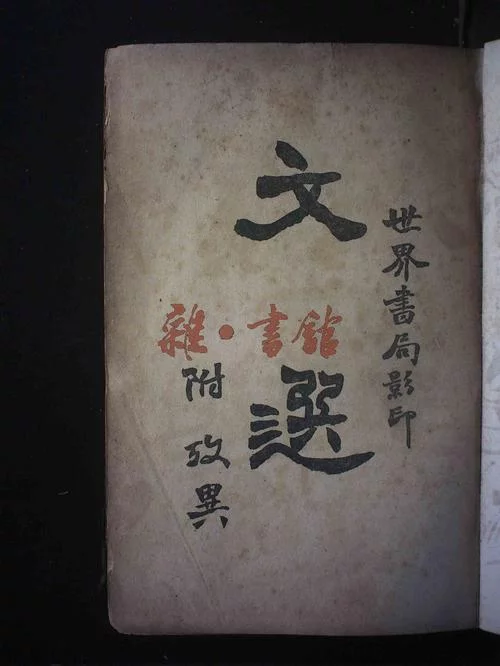 世界書局影印
文選
附攷異
雜·書館